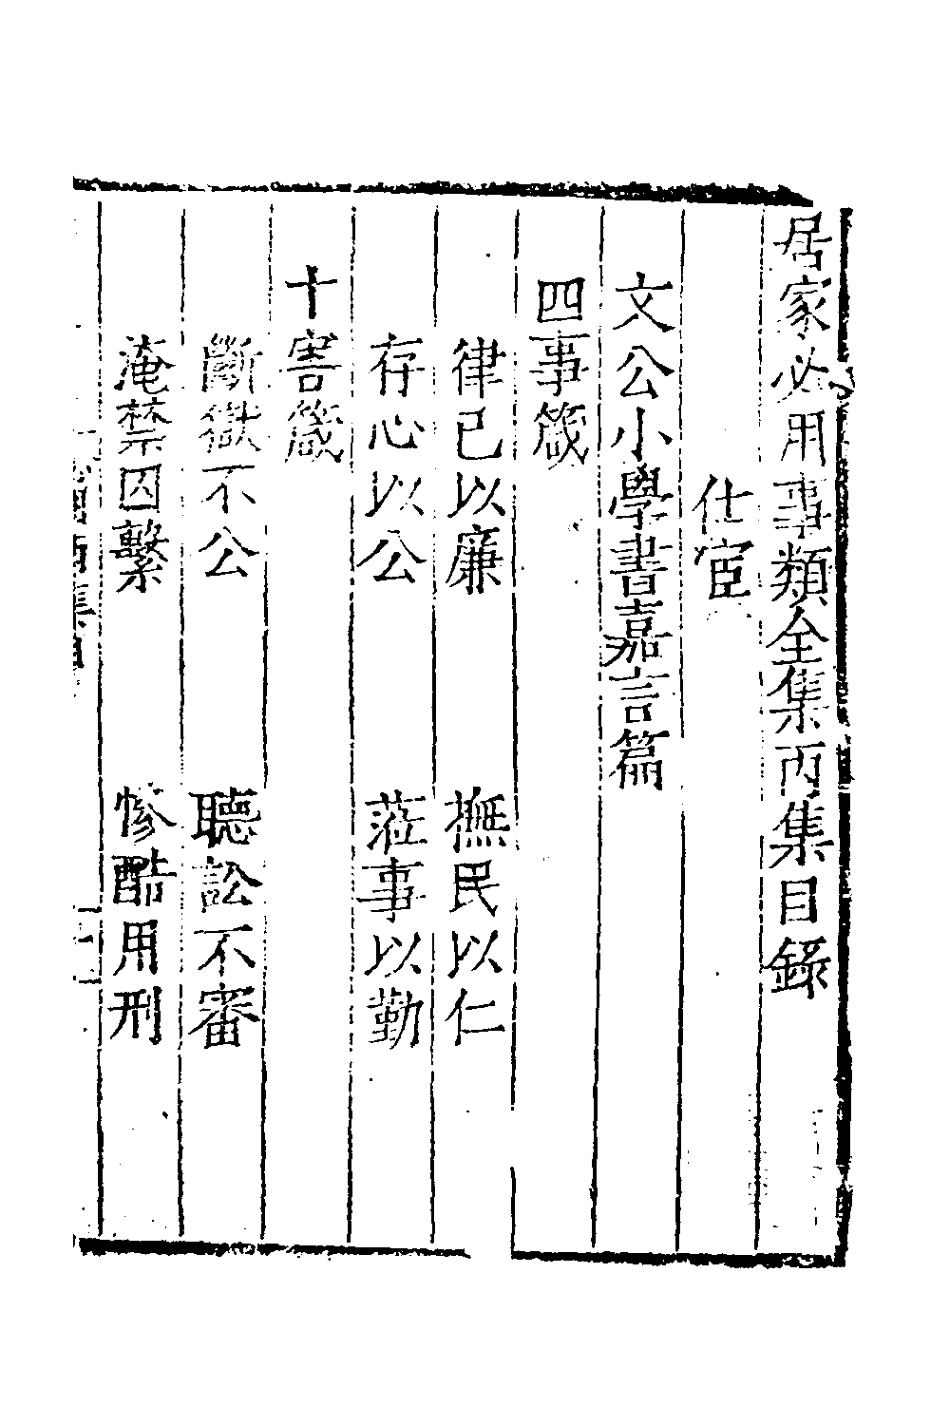 居家必用事類全集丙集目錄
仕宦
文公小學書嘉言篇
四事箴
律己以廉　撫民以仁
存心以公　蒞事以勤
十害箴
斷獄不公　聽訟不審
淹禁囚繫　慘酷用刑